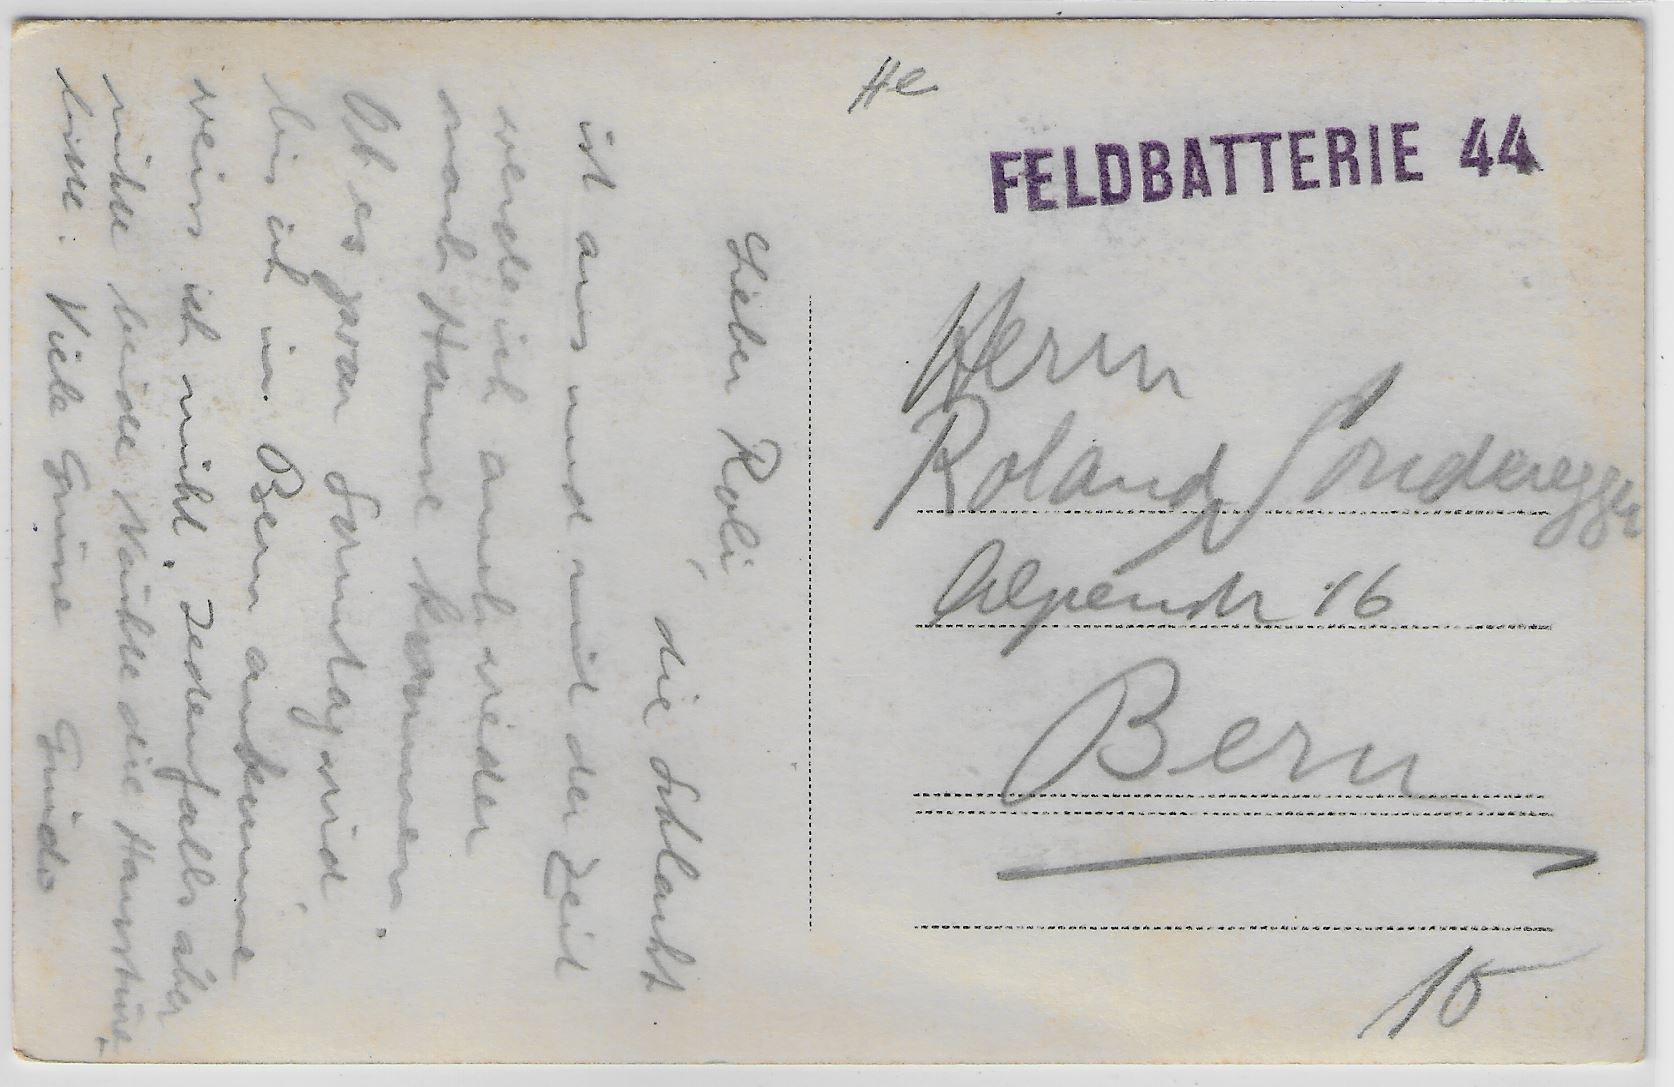 He
FELDBATTERIE 44
Herrn
Roland Sonderegger
Alpenstr 16
Bern
10
Lieber Roli,
die Schlacht
ist aus und mit der Zeit
werde ich auch wieder
nach Hause kommen.
Ob es zwar Sonntag wird,
bis ich in Bern ankomme
weiss ich nicht. Jedenfalls aber
beide Nächte die Haustüre
Viele Grüsse Guido